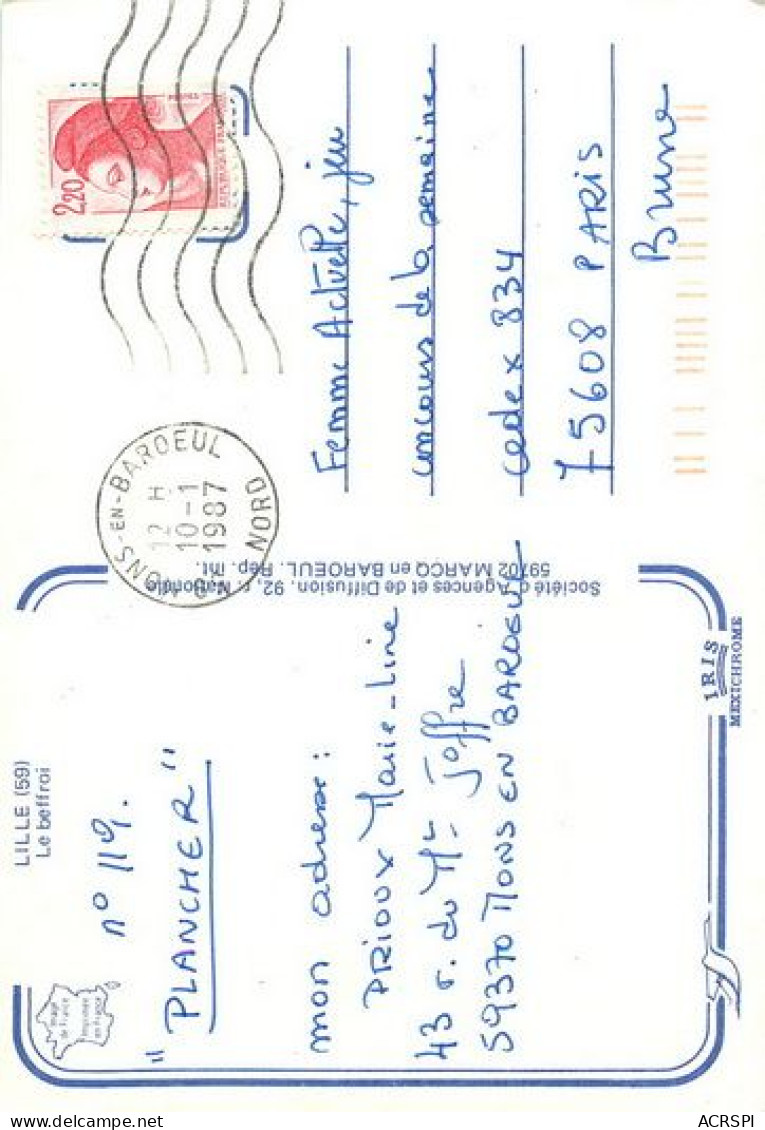 LILLE (59)
Le beffroi
Image
de France
Imprimée
en France
n° 119.
"PLANCHER"
mon adresse :
PRIOUX Marie-Line
43 r. du Mal Joffre
59370 MONS EN BAROEUL
Société d'Agences et de Diffusion. 92, r. Nationale
59702 MARCQ en BAROEUL. Rep. Int.
IRIS
MEXICHROME
MONS-EN-BAROEUL
12 H
10-1
1987
NORD
2,20
REPUBLIQUE FRANCAISE
POSTES
Femme Actuelle, jeu
concours de la semaine
cedex 834
75608 PARIS
Brune
ACRSPI